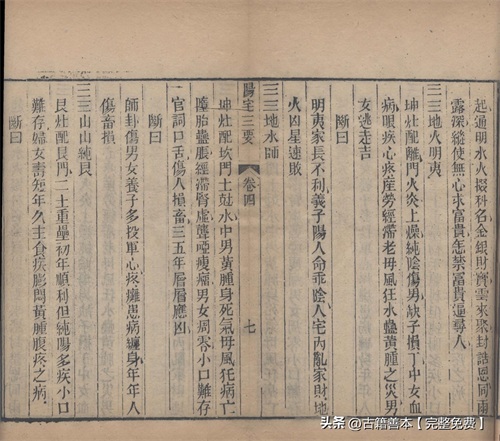 起通明水火掇科名金銀財寶雲來聚封誥恩同雨
露深縱使無心求富貴怎禁富貴逼尋人
地火明夷
坤灶配離門火炎上燥純陰傷男缺子損丁中女血
病眼疾心疼產勞經滯老母風狂水蠱黃腫之災男
女逃走吉
斷曰
明夷家長不利義子陽人命乖陰人宅內亂家財地
火凶星速敗
地水師
陽宅三要 卷四 七
坤灶配坎門土尅水中男黃腫身死氣母風狂病亡
墮胎蠱脹經滯腎虛聾啞瘦癆男女周零小口難存
官詞口舌傷人損畜三五年層層應凶
斷曰
師卦傷男女義子多投軍心疼癱患病纏身年年人
傷畜損
山山純艮
艮灶配艮門二土重壘初年順利但純陽多疾小口
難存婦女壽短年久主食疾膨悶黃腫腹疼之病
斷曰
头条 @古籍善本【完整免费】